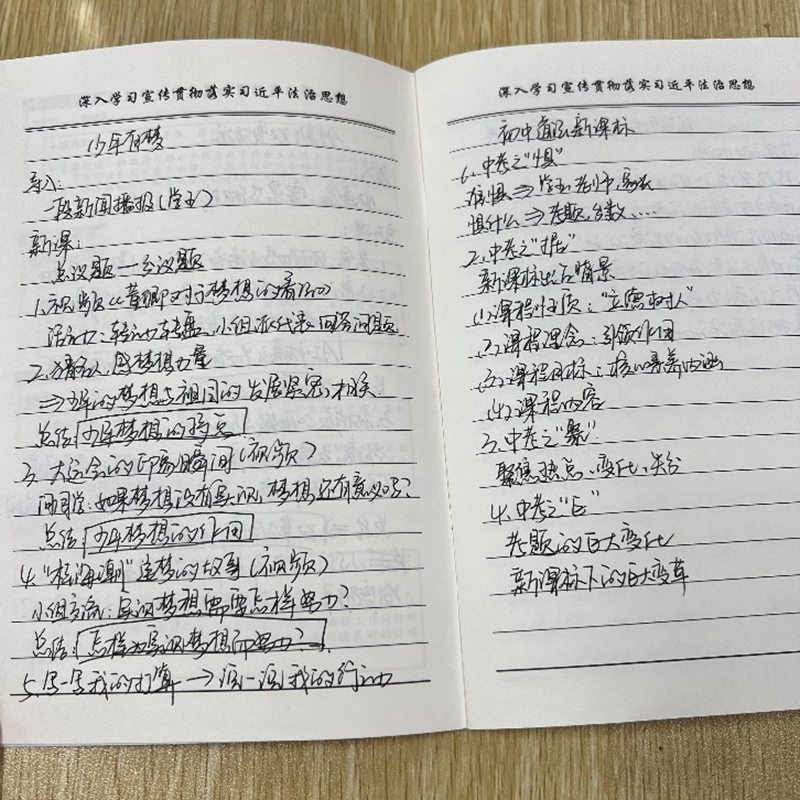 深入学习宣传贯彻落实习近平法治思想
少年有梦
导入:
一段新闻播报(学生)
新课:
总议题—分议题
1.视频《黄卿对于梦想的看法》
活动:转动转盘,小组派代表回答问题
2.猜名人,思梦想力量
⇒少年的梦想与祖国的发展紧密相关
总结 少年梦想的特点
3.大运会的印象瞬间(视频)
问同学:如果梦想没有实现,梦想还有意义吗?
总结 少年梦想的作用
4."桂海潮"追梦的故事(视频)
小组交流:实现梦想需要怎样努力?
总结 怎样为实现梦想而努力?
5.写一写我的打算→说一说我的行动
深入学习宣传贯彻落实习近平法治思想
初中道法新课标
1.中考之"惧"
谁惧⇒学生、老师、家长
惧什么⇒考题,分数....
2.中考之"据"
新课标出台背景
(1)课程性质:"立德树人"
(2)课程理念:引领作用
(3)课程目标:核心素养内涵
(4)课程内容
3.中考之"聚"
聚焦热点、变化、失分
4.中考之"巨"
考题的巨大变化
新课标下的巨大变革